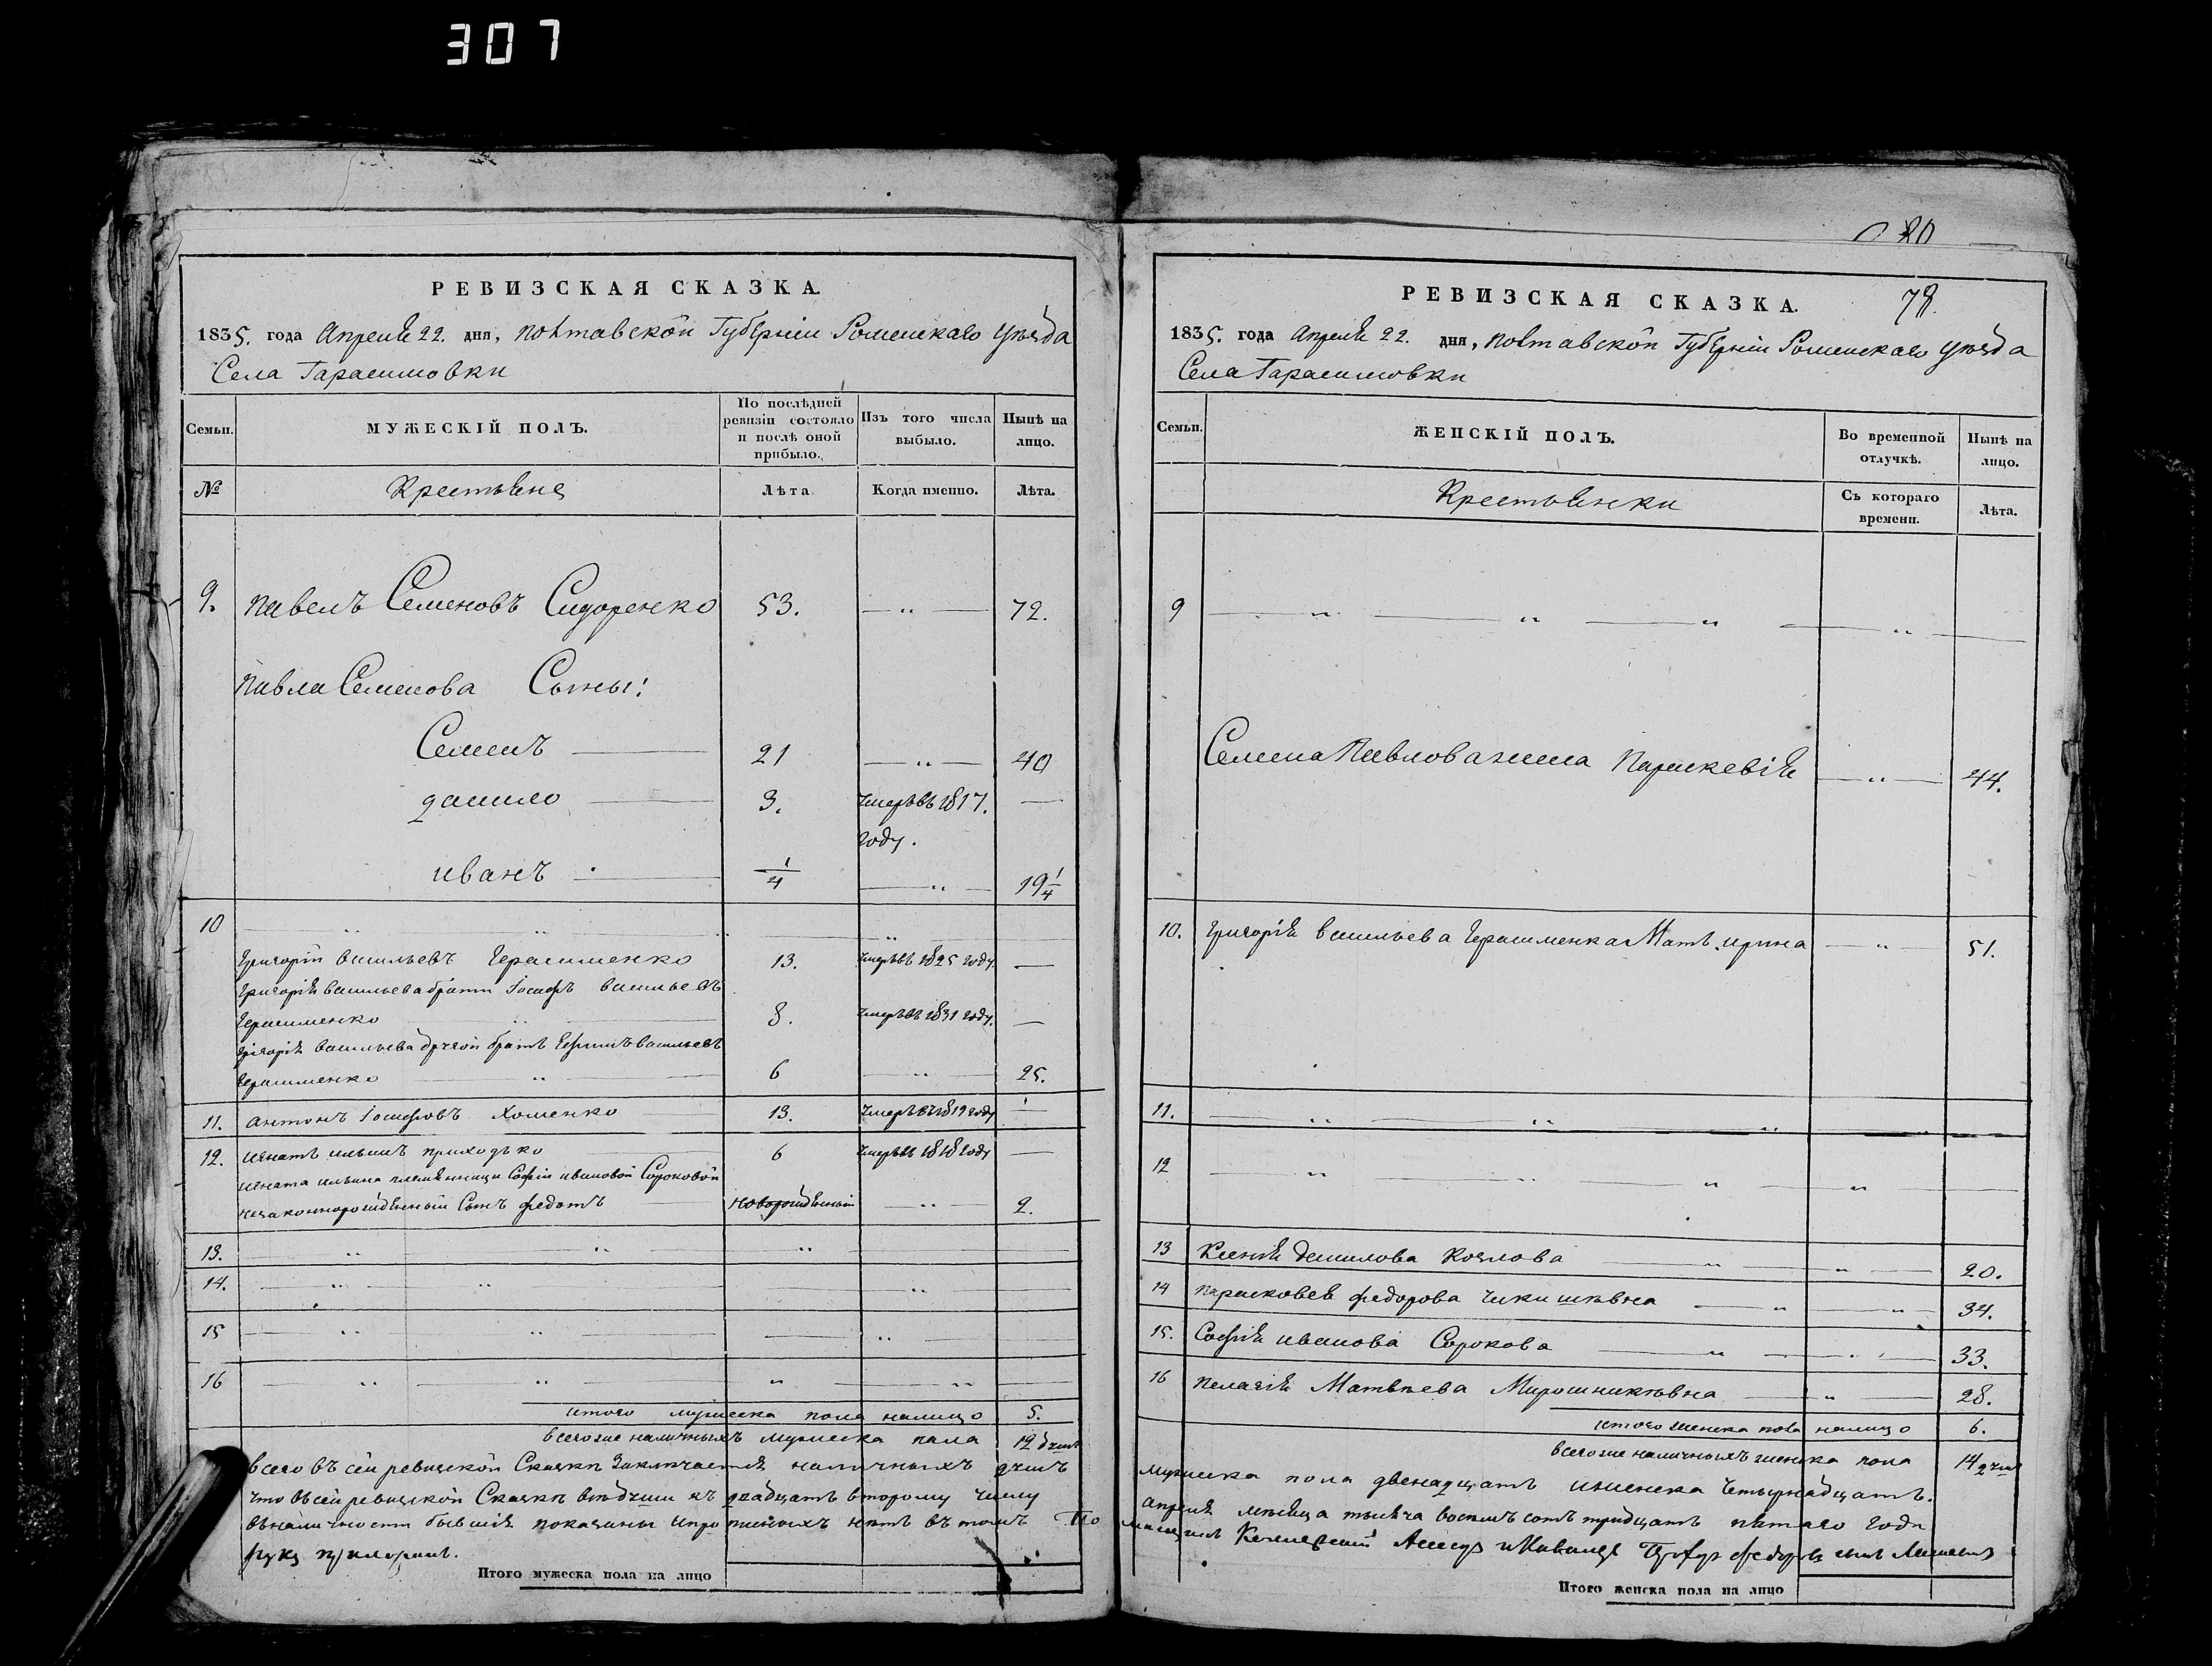 307
РЕВИЗСКАЯ СКАЗКА.
1835. года Апреля 22. дня, полтавской Губерніи Роменскаго уезда
Села Гарасимовки
Семьи.
МУЖЕСКІЙ ПОЛЪ.
По послѣдней ревизіи состояло и послѣ оной прибыло.
Изъ того числа выбыло.
Нынѣ на лицо.
№
Крестьяне
Лѣта
Когда именно.
Лѣта.
9. павелъ Семеновъ Сидоренко 53. — „ — 72.
павла Семенова Сыны:
Семенъ 21 — „ — 40
данило 3. умеръ въ 1817. году. —
иванъ 1/4 — „ — 19 1/4
10
григорій васильевъ Герасименко 13. умеръ въ 1825 году. —
григорія васильева братъ Іосифъ васильевъ
Герасименко 8. умеръ въ 1831 году. —
григорія васильева другой братъ Ефимъ васильевъ
Герасименко 6 — „ — 25.
11. антонъ Іосифовъ Хоменко 13. умеръ въ 1819 году —
12. игнатъ ильинъ приходько 6 умеръ въ 1818 году —
игната ильина племянницы Софіи ивановой Сороковой
незаконнорожденный Сынъ федотъ новорожденный — „ — 2.
13.
14.
15
16
итого мужеска пола налицо 5.
всегоже наличныхъ мужеска пола 12 душъ
всего въ сей ревизской Сказки Заключается наличныхъ душъ
что въ сей ревизской Сказкѣ все души къ двадцать второму числу
въ наличности бывшія показаны и прописныхъ нетъ въ томъ
руку приложилъ.
Итого мужеска пола на лицо
80
78.
РЕВИЗСКАЯ СКАЗКА.
1835. года Апреля 22. дня, полтавской Губерніи Роменскаго уезда
Села Гарасимовки
Семьи.
ЖЕНСКІЙ ПОЛЪ.
Во временной отлучкѣ.
Нынѣ на лицо.
Крестьянки
Съ котораго времени.
Лѣта.
9
Семена Павлова жена Параскевія — „ — 44.
10. григорія васильева Герасименка Мать ирина — „ — 51.
11.
12
13 Ксенія данилова Козлова 20.
14 парасковея федорова 34.
15. Софія иванова Сорокова 33.
16 пелагія Матвѣева Мирошниковна 28.
итого женска пола налицо 6.
всегоже наличныхъ женска пола 14 душъ
мужеска пола двенадцать и женска четырнадцать.
апреля месяца тысяча восемь сотъ тридцать пятаго года
Итого женска пола на лицо